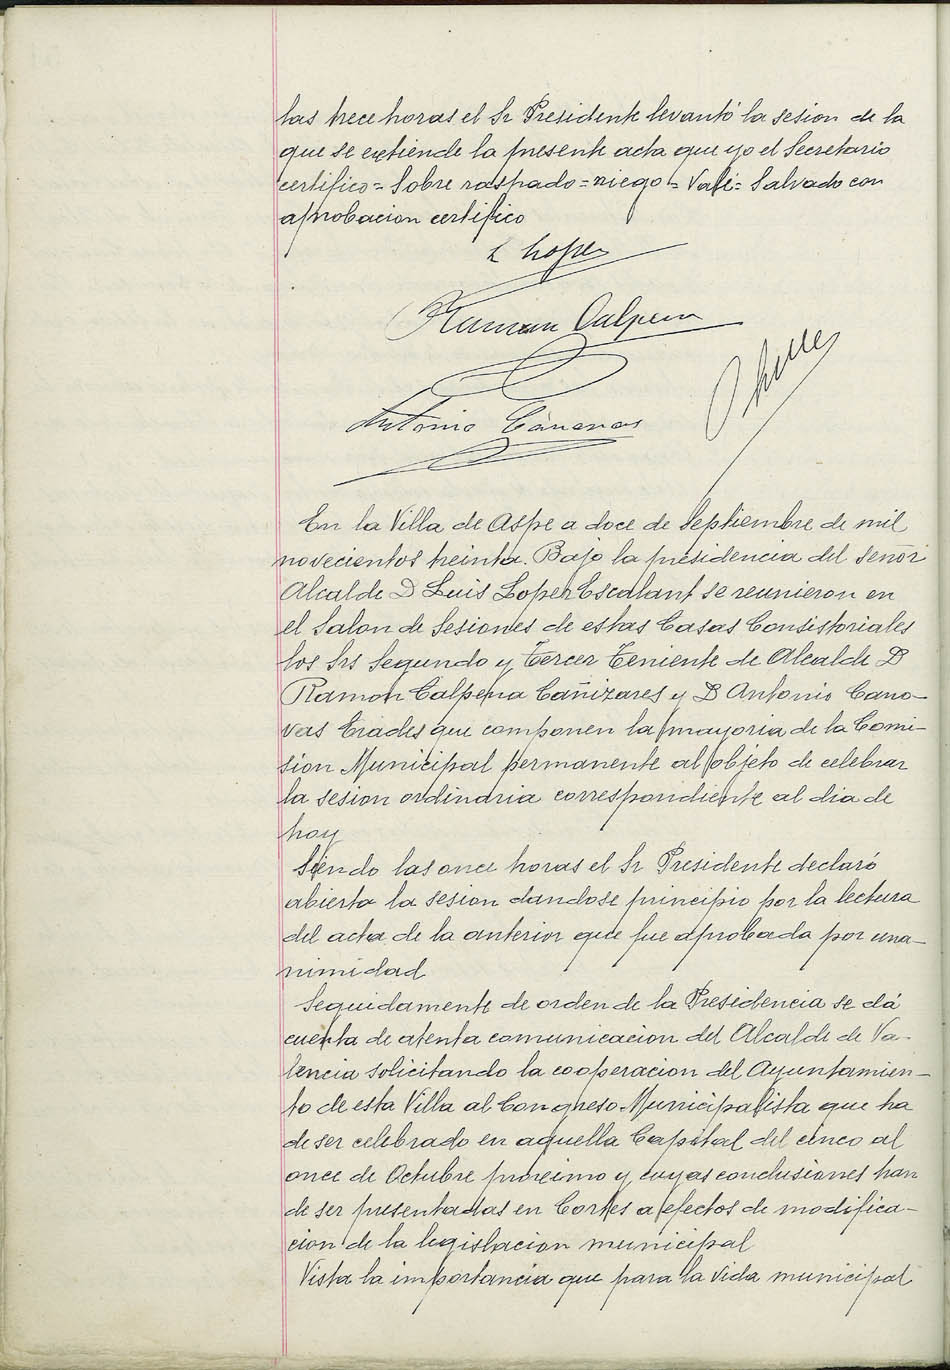 las trece horas el Sr Presidente levantó la sesion de la
que se extiende la presente acta que yo el Secretario
certifico = Sobre raspado = riego = Vale = Salvado con
aprobacion certifico
L Lopez
Ramon Calpena
Antonio Cánovas
En la Villa de Aspe a doce de Septiembre de mil
novecientos treinta. Bajo la presidencia del señor
Alcalde D Luis Lopez Escalant se reunieron en
el Salon de Sesiones de estas Casas Consistoriales
los Srs Segundo y tercer Teniente de Alcalde D
Ramon Calpena Cañizares y D Antonio Cano-
vas Erades que componen la mayoria de la Comi-
sion Municipal permanente al objeto de celebrar
la sesion ordinaria correspondiente al dia de
hoy
Siendo las once horas el Sr Presidente declaró
abierta la sesion dandose principio por la lectura
del acta de la anterior que fue aprobada por una-
nimidad
Seguidamente de orden de la Presidencia se dá
cuenta de atenta comunicacion del Alcalde de Va-
lencia solicitando la cooperacion del Ayuntamien-
to de esta Villa al Congreso Municipalista que ha
de ser celebrado en aquella Capital del cinco al
once de Octubre proximo y cuyas conclusiones han
de ser presentadas en Cortes a efectos de modifica-
cion de la legislacion municipal
Vista la importancia que para la vida municipal